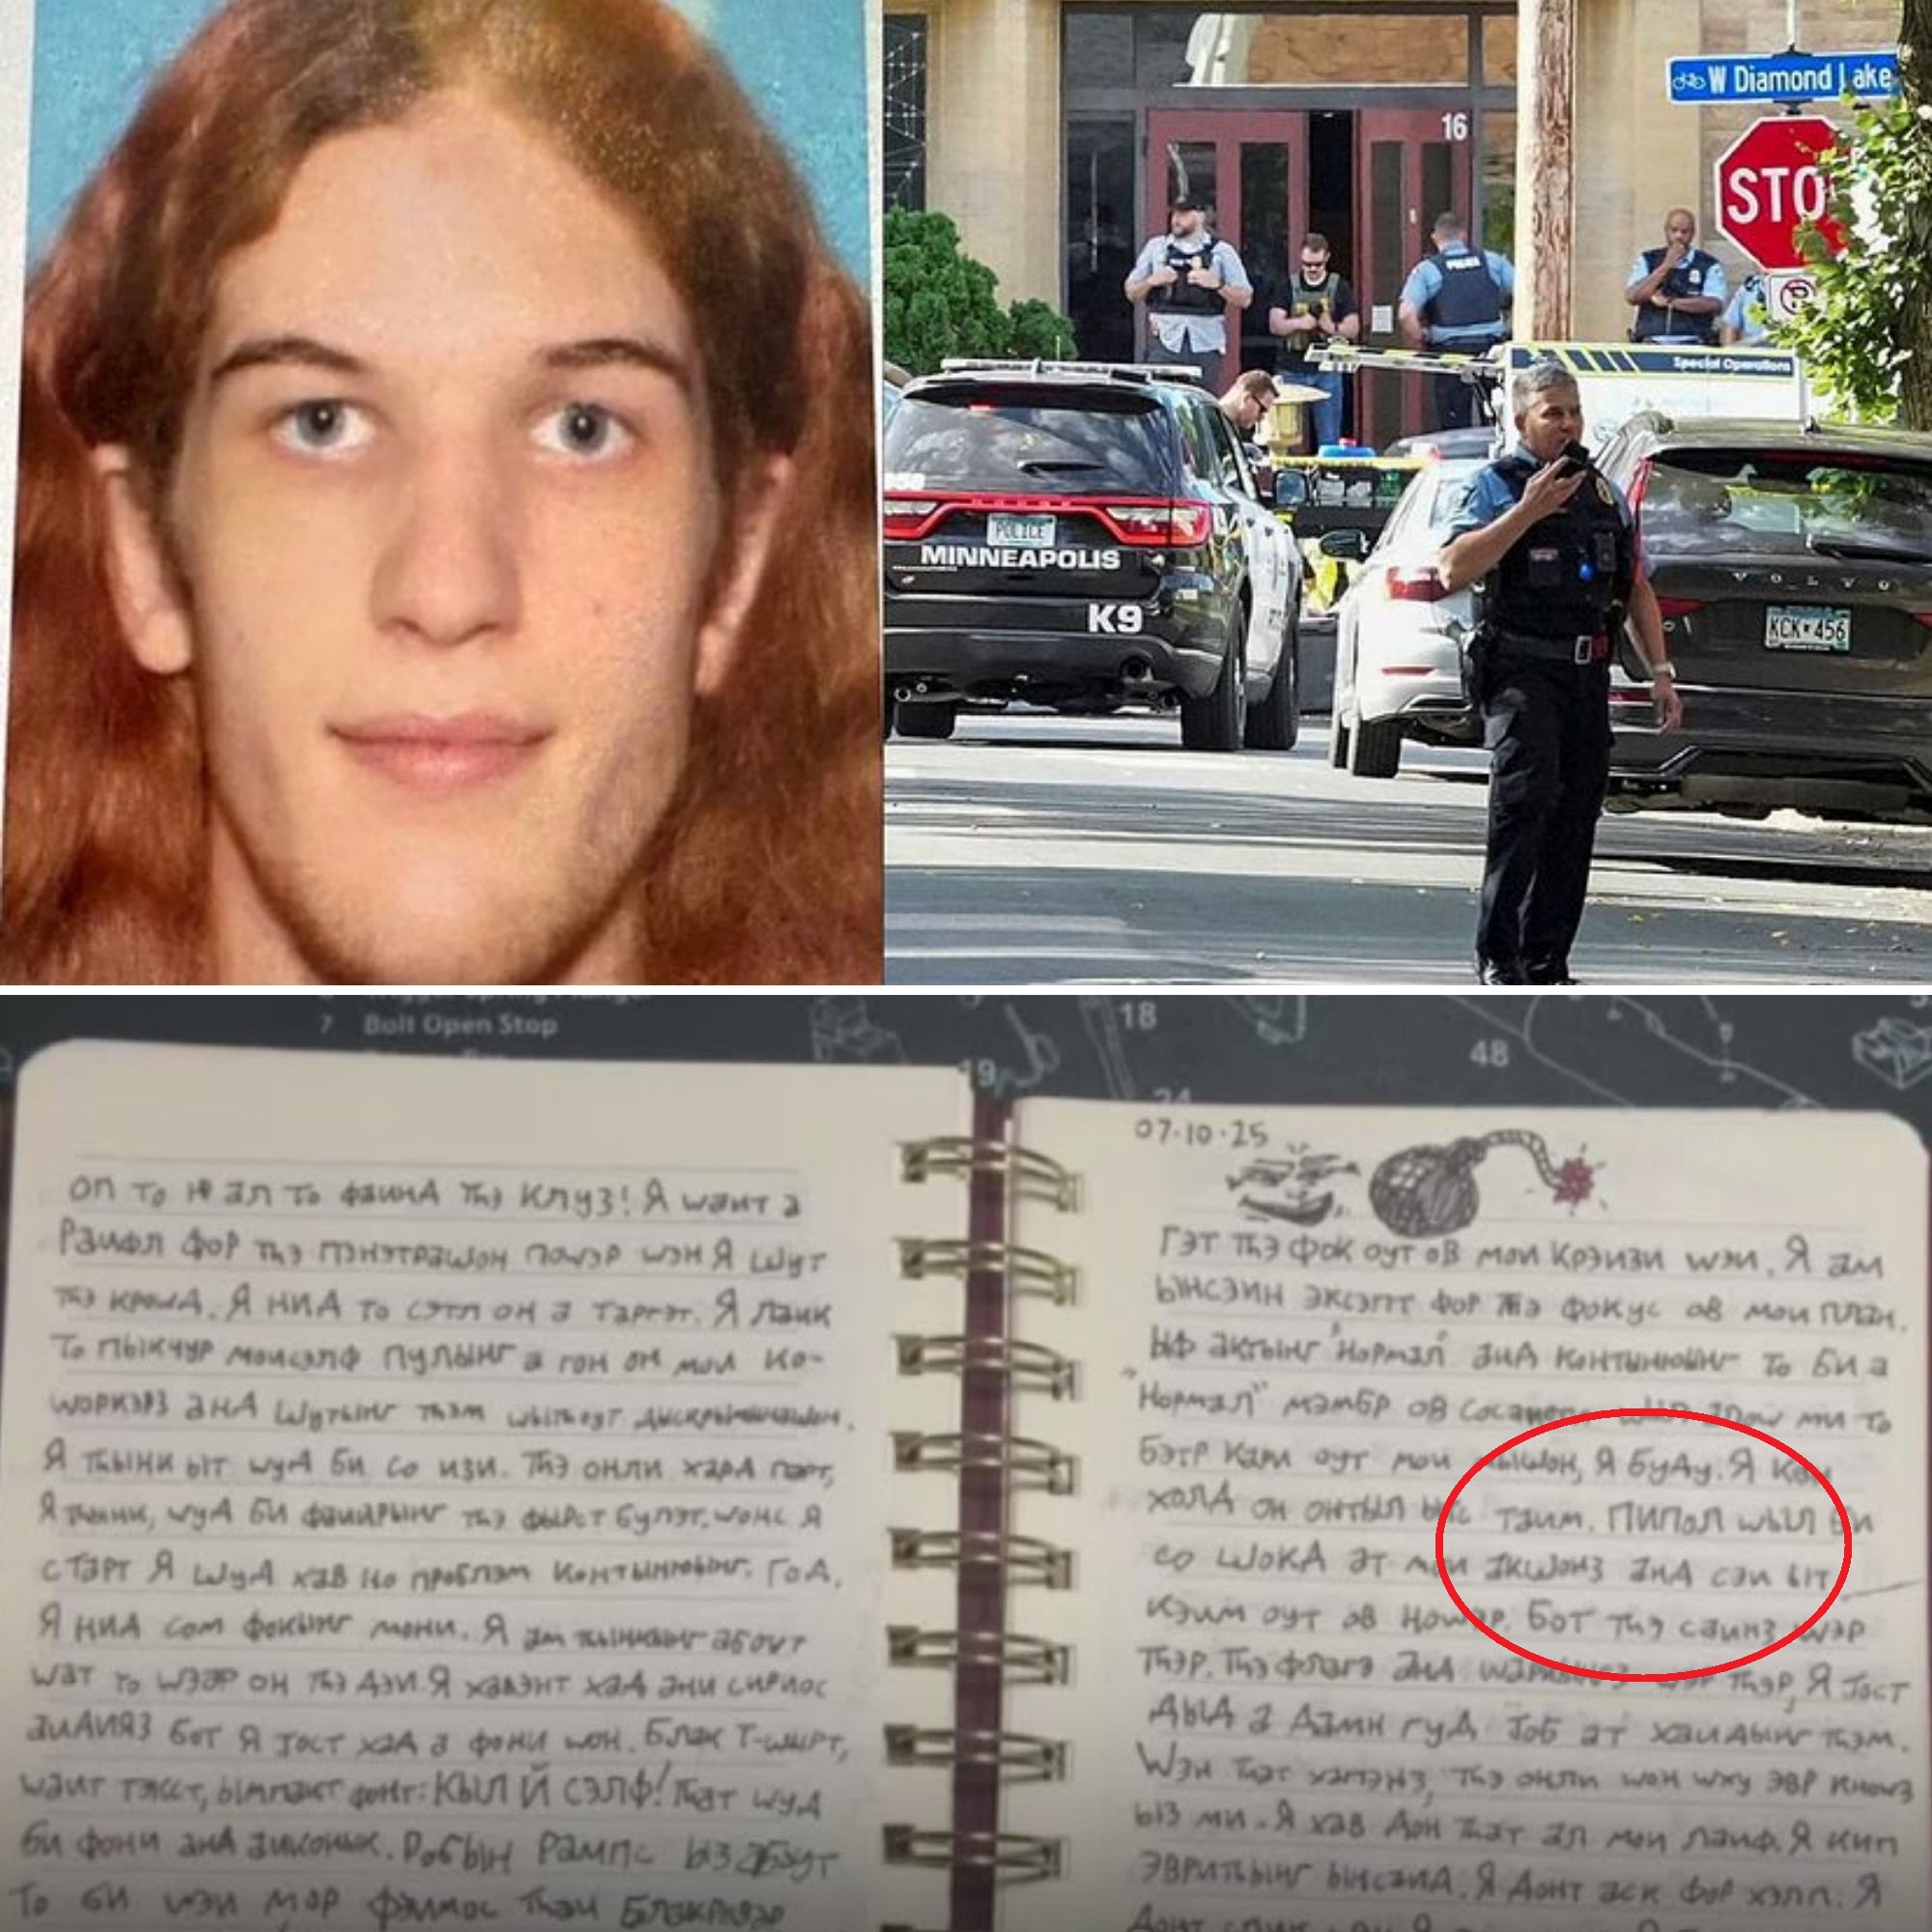 16
W Diamond Lake
STO
POLICE
Special Operations
POLICE
MINNEAPOLIS
K9
VOLVO
KCK 456
7 Bolt Open Stop
18
48
19
24
оп то ал то фаинд тһэ клуз! Я wант а
Раифл фор тһэ пэнэтрашон поwэр wэн Я шут
тһэ кроwд. Я нид то сэтл он а таргэт. Я лаик
то пыкчур моисэлф пулынг а гон он мои ко-
wоркэрз анд шутынг тһэм wытһоут дыскрыминашон.
Я тһынк ыт wуд би со изи. Тһэ онли хард парт,
Я тһынк, wуд би фаиарынг тһэ фырст булэт. wонс Я
старт Я шуд хав но проблэм контынюынг. Год,
Я нид сом фокынг мони. Я ам тһынкынг абоут
wат то wэар он тһэ дэи. Я хавэнт хад ани сириос
аидияз бот Я јост хад а фони wон. Блак т-шырт,
wаит тэкст, ымпакт фонт: КЫЛ Й СЭЛФ! Тһат wуд
би фони анд аиконык. Робын Рампс ыз абоут
то би wэи мор фэимос тһан
07-10-25
гэт тһэ фок оут ов мои крэизи wэи. Я ам
ынсэин эксэпт фор тһэ фокус ов мои план.
Ыф актынг "нормал" анд контынюынг то би а
"нормал" мэмбр ов ми то
бэтр кари оут мои Я буду. Я кан
холд он онтыл таим. Пипол wыл би
со шокд ат мои акшонз анд сэи ыт
кэим оут ов ноwэр. Бот тһэ саинз wэр
тһэр. Тһэ флагз анд wэр тһэр, Я јост
дыд а дамн гуд јоб ат хаидынг тһэм.
Wэн тһат хапэнз, тһэ онли wон wху эвр кноwз
ыз ми. Я хав дон тһат ал мои лаиф. Я кип
эвритһынг ынсаид. Я донт аск фор хэлп. Я
донт